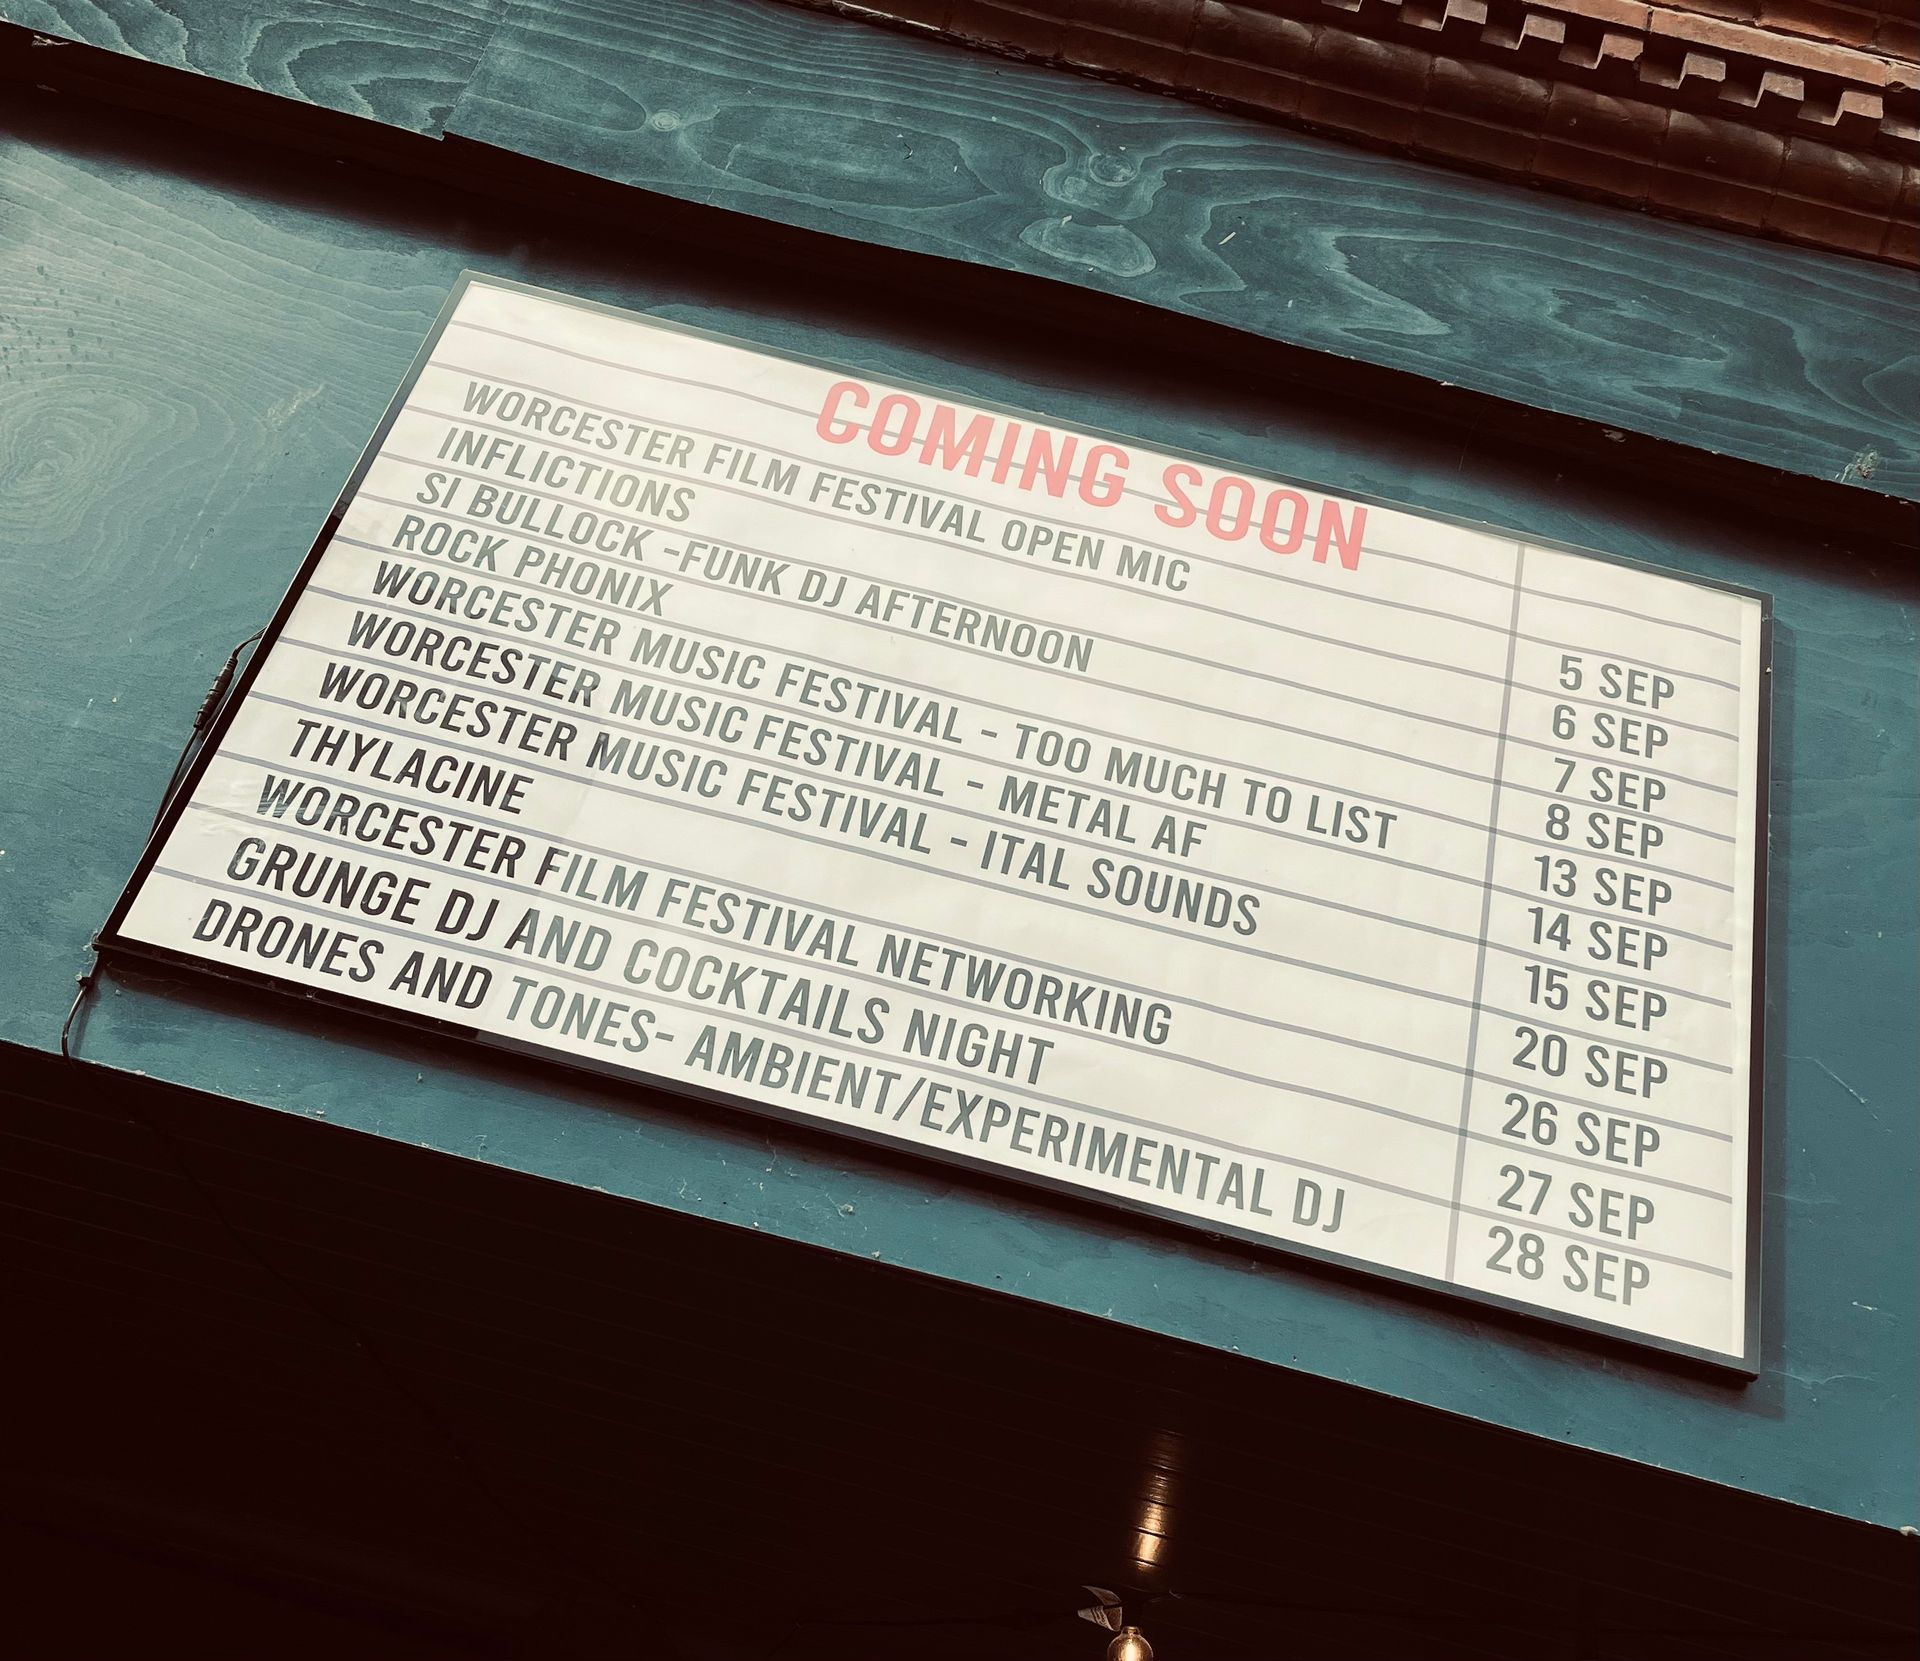 COMING SOON
WORCESTER FILM FESTIVAL OPEN MIC 5 SEP
INFLICTIONS 6 SEP
SI BULLOCK -FUNK DJ AFTERNOON 7 SEP
ROCK PHONIX 8 SEP
WORCESTER MUSIC FESTIVAL - TOO MUCH TO LIST 13 SEP
WORCESTER MUSIC FESTIVAL - METAL AF 14 SEP
WORCESTER MUSIC FESTIVAL - ITAL SOUNDS 15 SEP
THYLACINE 20 SEP
WORCESTER FILM FESTIVAL NETWORKING 26 SEP
GRUNGE DJ AND COCKTAILS NIGHT 27 SEP
DRONES AND TONES- AMBIENT/EXPERIMENTAL DJ 28 SEP